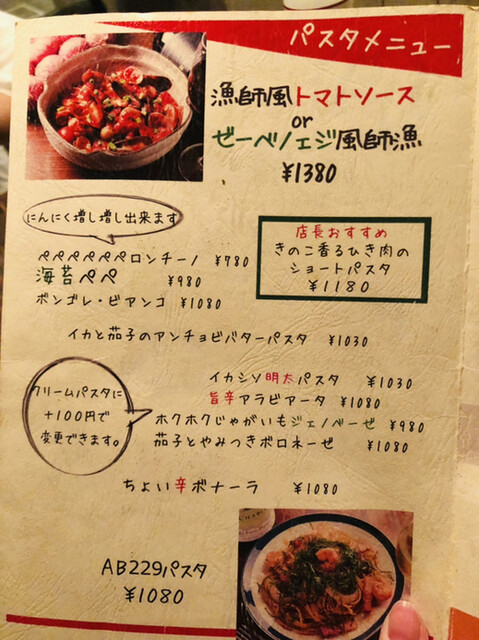 パスタメニュー
漁師風トマトソース
or
ぜーべ
師漁
¥1380
にんにく増し増し出来ます
ペペペペペペロンチーノ ¥780
海苔ペペ ¥980
ボンゴレ・ビアンコ ¥1080
店長おすすめ
きのこ香るひき肉の
ショートパスタ
¥1180
イカと茄子のアンチョビバターパスタ ¥1030
クリームパスタに
+100円で
変更できます。
イカシソ明太パスタ ¥1030
旨辛アラビアータ ¥1080
ホクホクじゃがいもジェノベーゼ ¥980
茄子とやみつきボロネーゼ ¥1080
ちょい辛ボナーラ ¥1080
AB229パスタ
¥1080